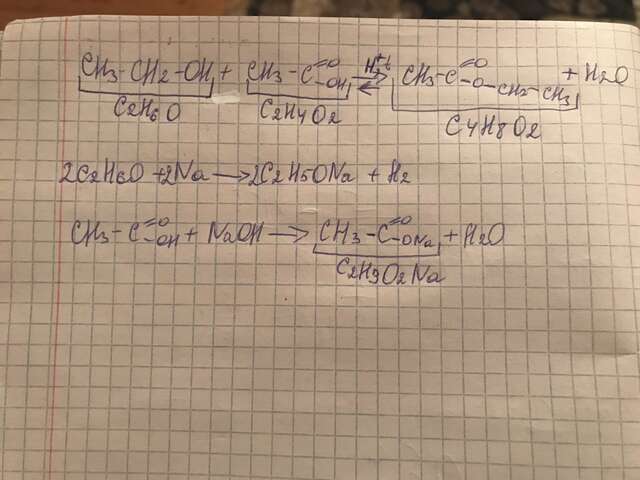 CH3-CH2-OH + CH3-C=O-OH H+, t ⇄ CH3-C=O-O-CH2-CH3 + H2O
C2H6O C2H4O2 C4H8O2
2C2H6O + 2Na → 2C2H5ONa + H2
CH3-C=O-OH + NaOH → CH3-C=O-ONa + H2O
C2H3O2Na